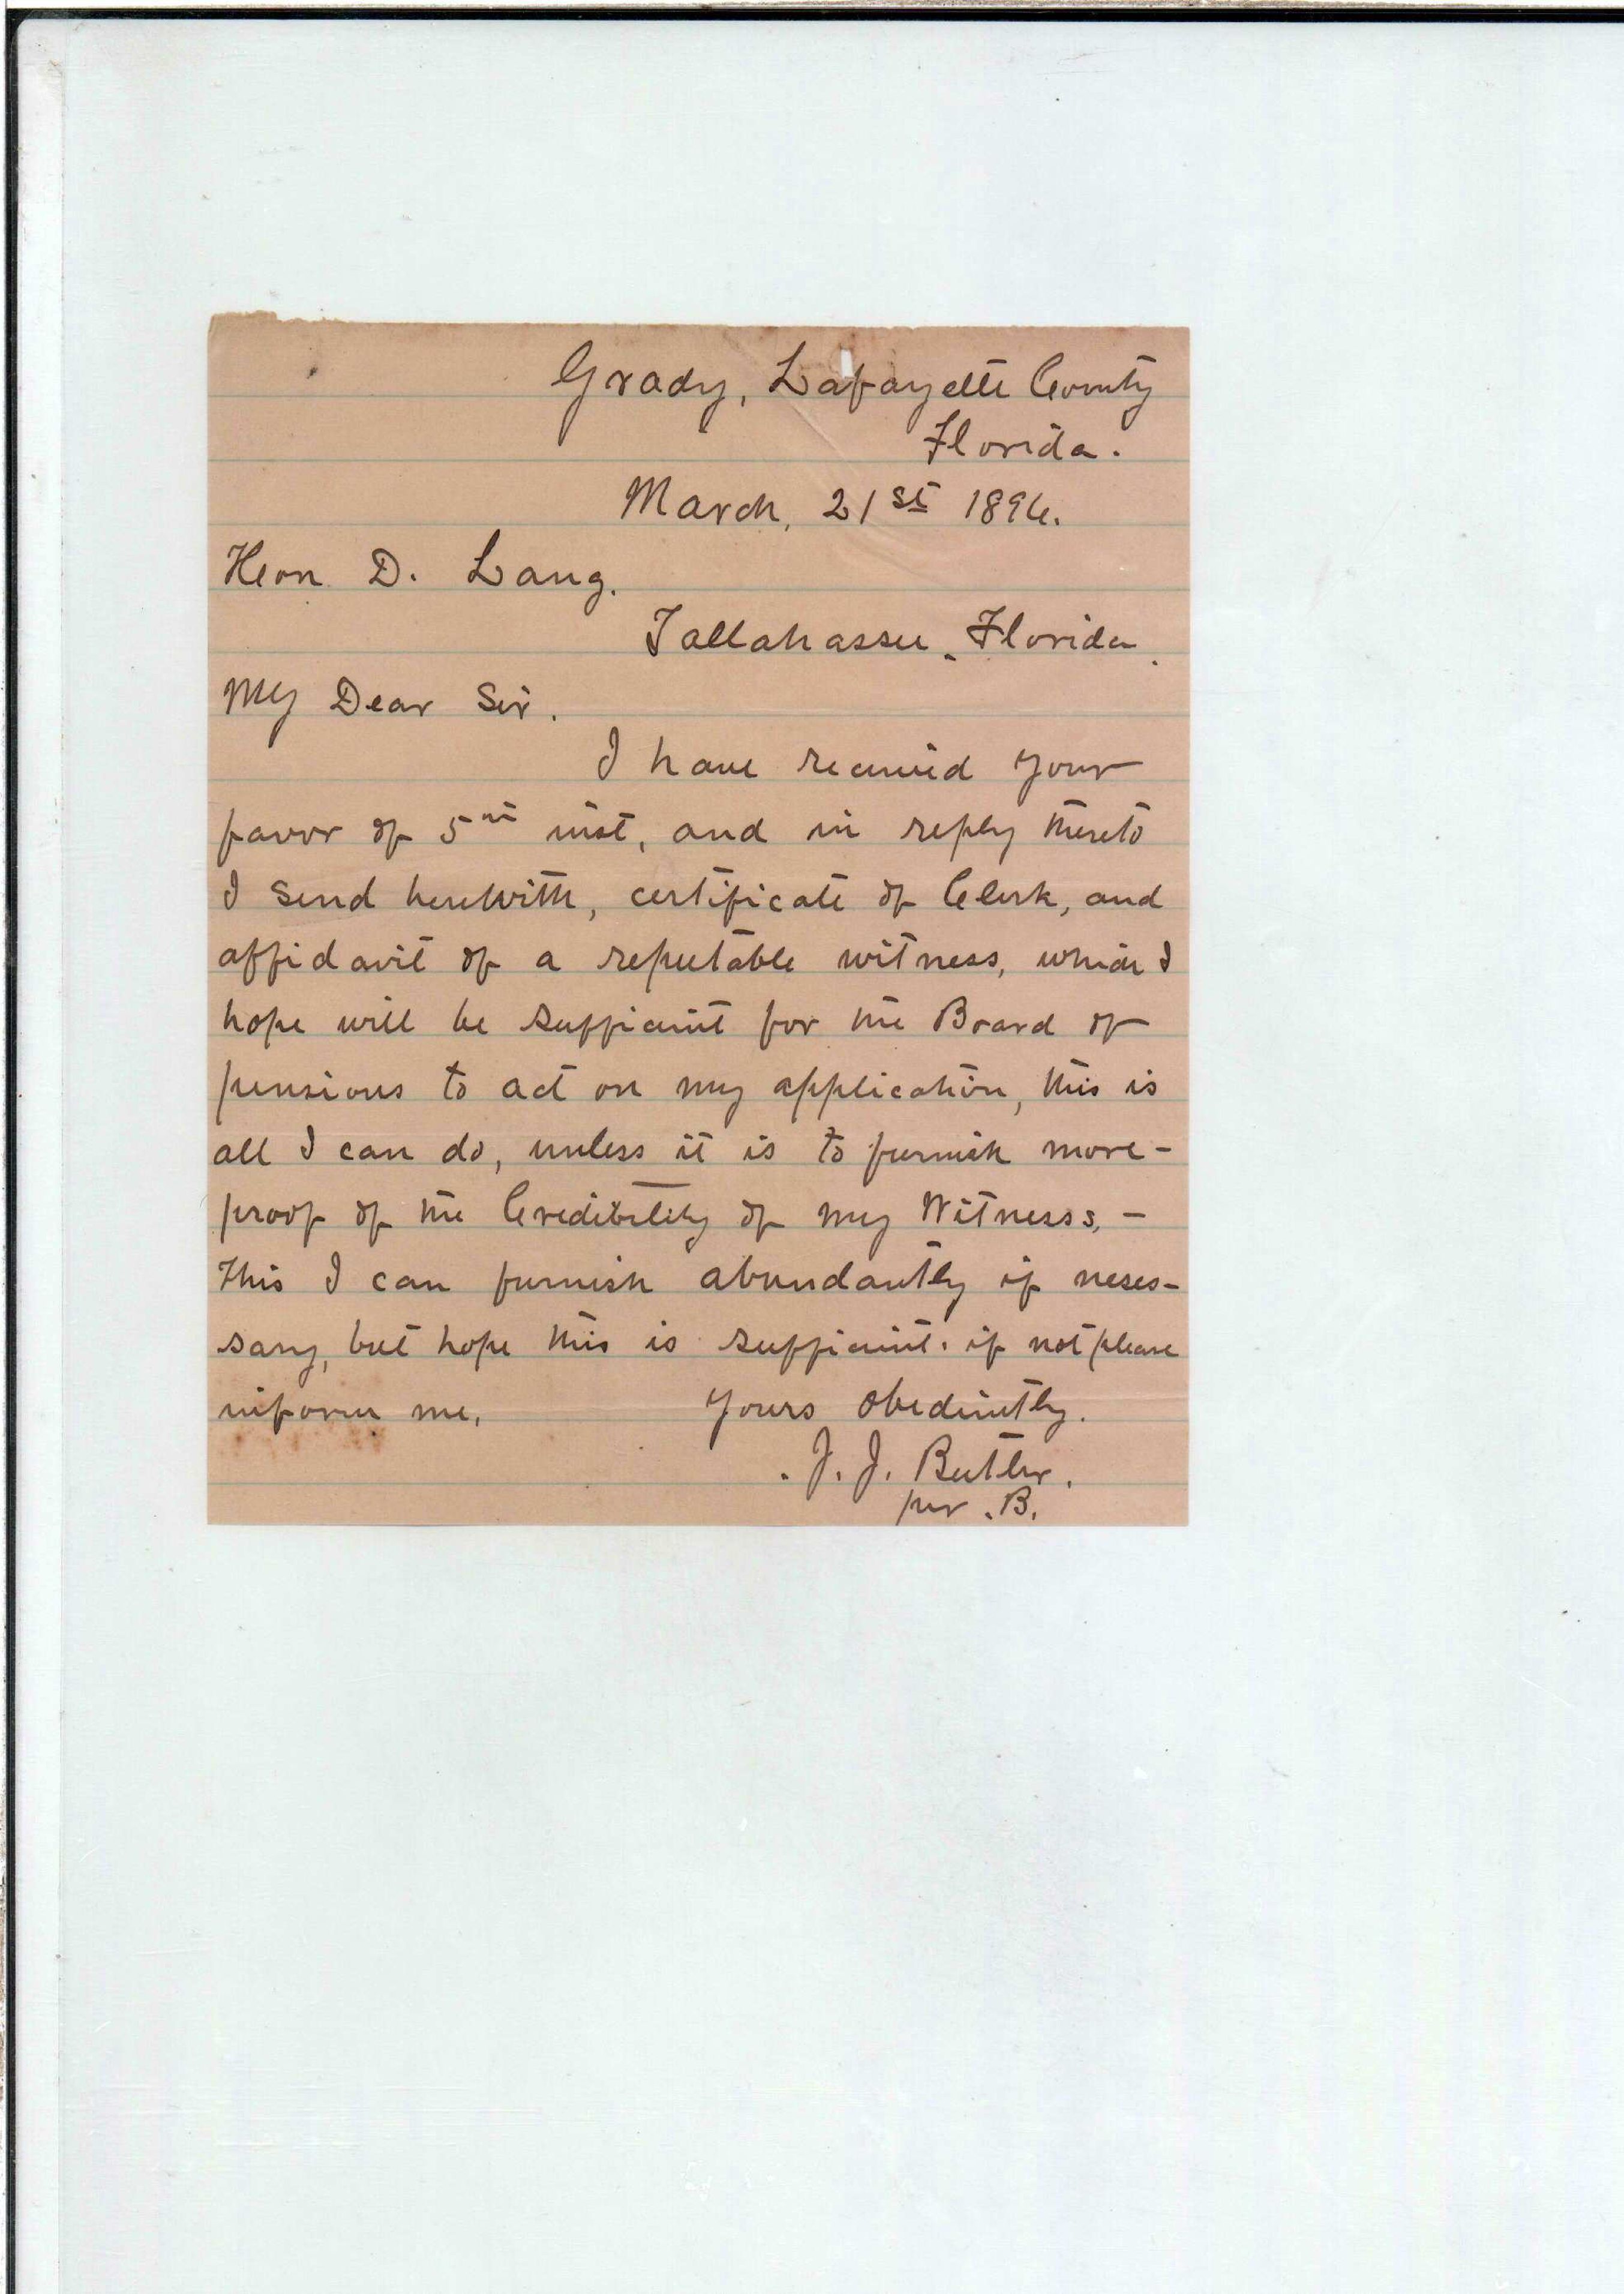 Grady, Lafayette County
Florida.
March, 21st 1894.
Hon D. Lang.
Tallahassee, Florida.
My Dear Sir.
I have received your
favor of 5th inst, and in reply thereto
I send herewith, certificate of Clerk, and
affidavit of a reputable witness, which I
hope will be sufficient for the Board of
pensions to act on my application, this is
all I can do, unless it is to furnish more-
proof of the Credibility of my Witness, -
this I can furnish abundantly if neses-
sary, but hope this is sufficient. if not please
inform me, Yours Obediently.
J. J. Butler.
per. B.